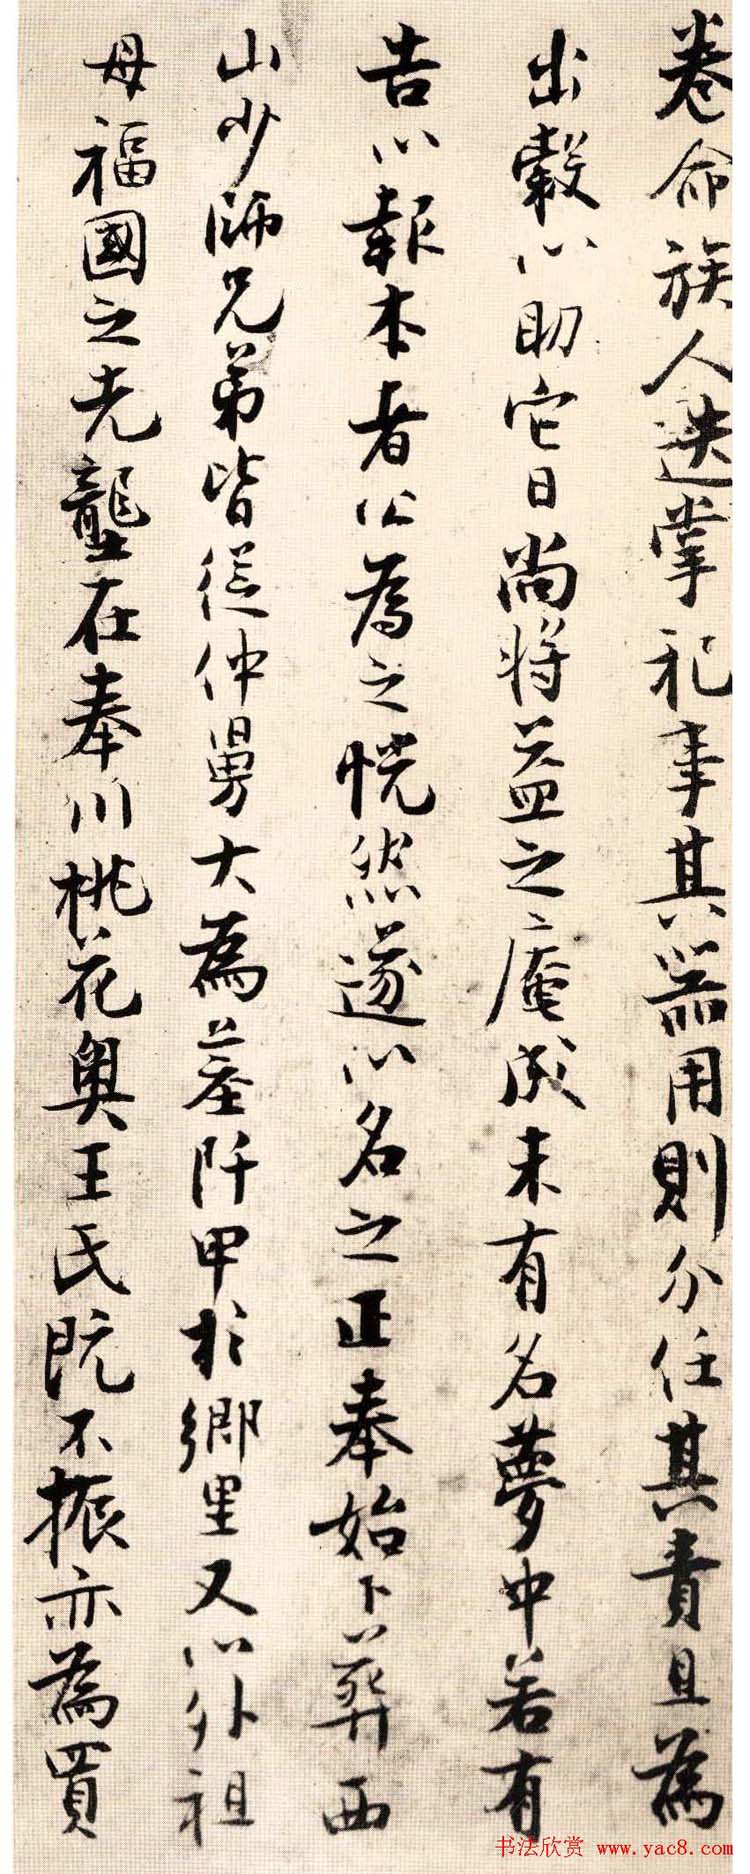 卷命族人迭掌祀事其器用則分任其責且為
出穀以助它日尚將益之庵成未有名夢中若有
告以報本者公為之怳然遂以名之正奉始卜葬西
山少師兄弟皆從仲舅大為墓阡甲於鄉里又以外祖
母福國之先壟在奉川桃花奧王氏既不振亦為買
书法欣赏 www.yac8.com